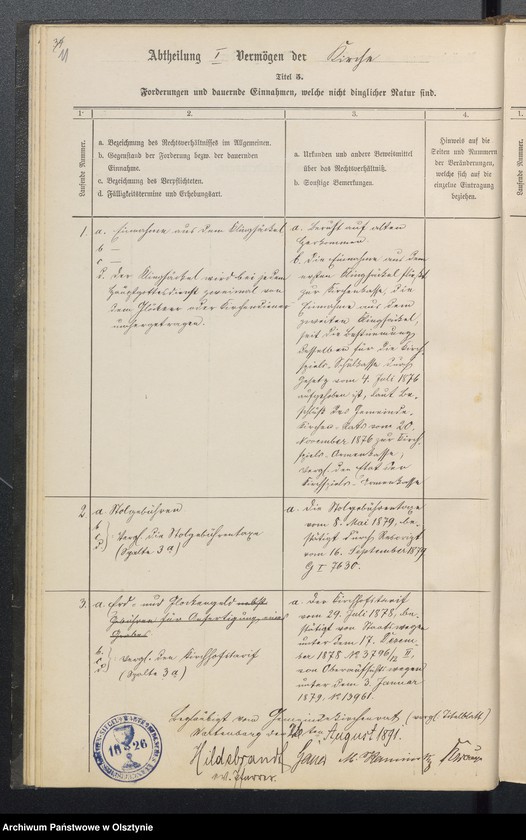 Abtheilung I Vermögen der Kirche
Titel 3.
Forderungen und dauernde Einnahmen, welche nicht dinglicher Natur sind.
1.
2.
3.
4.
1.
Laufende Nummer.
a. Bezeichnung des Rechtsverhältnisses im Allgemeinen.
b. Gegenstand der Forderung bezw. der dauernden
Einnahme.
c. Bezeichnung des Verpflichteten.
d. Fälligkeitstermine und Erhebungsart.
a. Urkunden und andere Beweismittel
über das Rechtsverhältniß.
b. Sonstige Bemerkungen.
Hinweis auf die
Seiten und Nummern
der Veränderungen,
welche sich auf die
einzelne Eintragung
beziehen.
Laufende Nummer.
1. a. Einnahme aus dem Klingsäckel
b —
c —
d. Der Klingsäckel wird bei jedem
Hauptgottesdienst zweimal von
dem Glöckner oder Kirchendiener
umhergetragen.
a. Beruht auf altem
Herkommen.
b. Die Einnahme aus dem
ersten Klingsäckel fließt
zur Kirchenkasse, die
Einnahme aus dem
zweiten Klingsäckel,
seit die Bestimmung
desselben für die Kirch-
spiels-Schulkasse durch
Gesetz vom 4. Juli 1876
aufgehoben ist, laut Be-
schluß des Gemeinde-
kirchen-Raths vom 20.
November 1876 zur Kirch-
spiels-Armenkasse,
vergl. den Etat der
Kirchspiels-Armenkasse
2 a Stolgebühren
b
c
d
vergl. die Stolgebührentaxe
(Spalte 3 a)
a. Die Stolgebührentaxe
vom 8. Mai 1879, be-
stätigt durch Rescript
vom 16. September 1879
G I 7630.
3. a. Erd- und Glockengeld nebst
Gebühren für Anfertigung eines
Grabes
b.
c.
d
vergl. den Kirchhofstarif
(Spalte 3 a)
a. Der Kirchhofstarif
vom 29. Juli 1878, be-
stätigt von Staatswegen
unter dem 17. Dezem-
ber 1878 No 3796/ II,
von Oberaufsichtswegen
unter dem 3. Januar
1879, No 13961.
Beglaubigt vom Gemeindekirchenrat (vergl. Titelblatt)
den 20ten August 1891.
Hildebrandt
Pfarrer.
1826
Archiwum Państwowe w Olsztynie